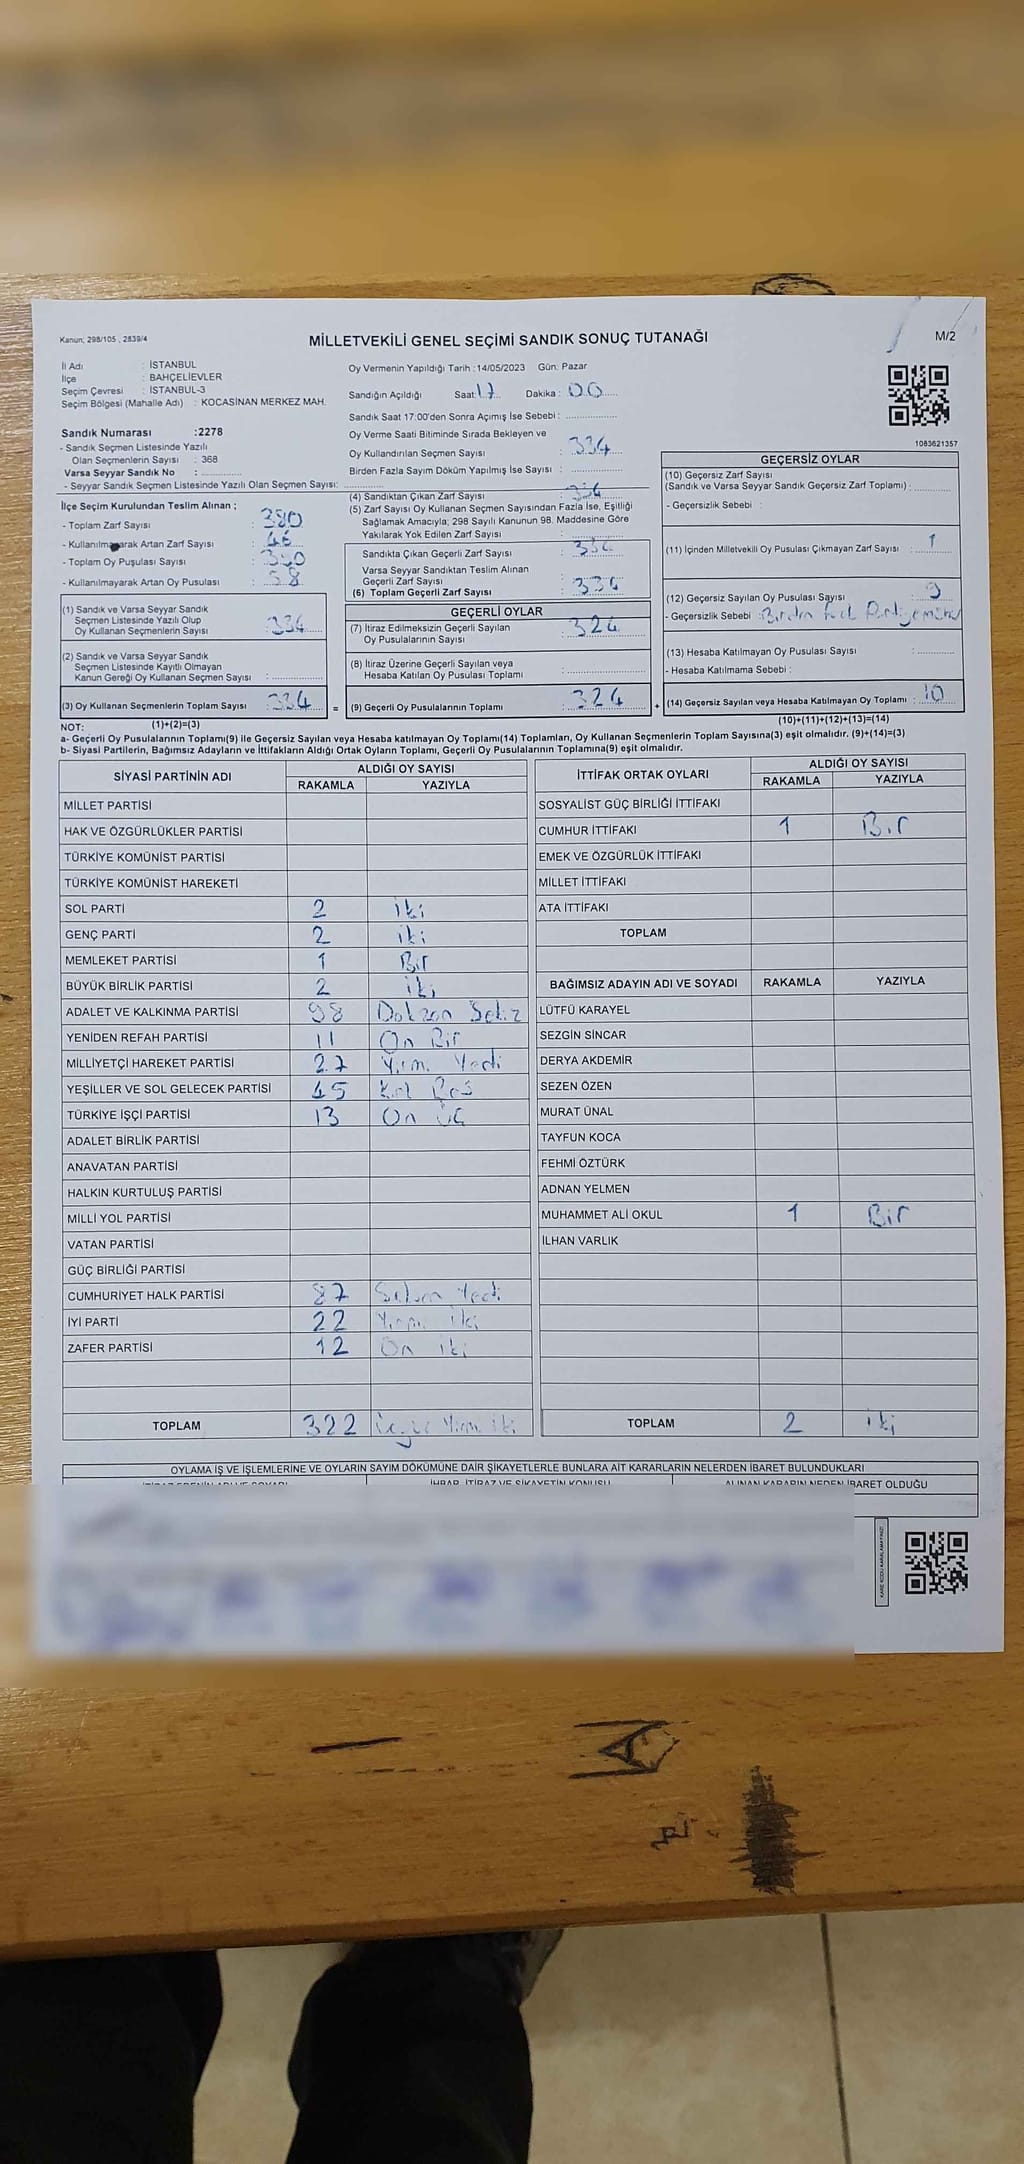 Kanun; 298/105 , 2839/4
MİLLETVEKİLİ GENEL SEÇİMİ SANDIK SONUÇ TUTANAĞI
M/2
İl Adı : İSTANBUL
İlçe : BAHÇELİEVLER
Seçim Çevresi : İSTANBUL-3
Seçim Bölgesi (Mahalle Adı) : KOCASİNAN MERKEZ MAH.
Oy Vermenin Yapıldığı Tarih :14/05/2023 Gün: Pazar
Sandığın Açıldığı Saat: 17 Dakika : 00
Sandık Saat 17:00'den Sonra Açımış İse Sebebi :
Sandık Numarası :2278
- Sandık Seçmen Listesinde Yazılı
Olan Seçmenlerin Sayısı : 368
Varsa Seyyar Sandık No :
- Seyyar Sandık Seçmen Listesinde Yazılı Olan Seçmen Sayısı:
Oy Verme Saati Bitiminde Sırada Bekleyen ve
Oy Kullandırılan Seçmen Sayısı : 334
Birden Fazla Sayım Döküm Yapılmış İse Sayısı :
1083621357
İlçe Seçim Kurulundan Teslim Alınan ;
- Toplam Zarf Sayısı : 380
- Kullanılmayarak Artan Zarf Sayısı : 46
- Toplam Oy Pusulası Sayısı : 380
- Kullanılmayarak Artan Oy Pusulası : 58
(1) Sandık ve Varsa Seyyar Sandık
Seçmen Listesinde Yazılı Olup
Oy Kullanan Seçmenlerin Sayısı : 334
(2) Sandık ve Varsa Seyyar Sandık
Seçmen Listesinde Kayıtlı Olmayan
Kanun Gereği Oy Kullanan Seçmen Sayısı :
(3) Oy Kullanan Seçmenlerin Toplam Sayısı : 334
(4) Sandıktan Çıkan Zarf Sayısı : 334
(5) Zarf Sayısı Oy Kullanan Seçmen Sayısından Fazla İse, Eşitliği
Sağlamak Amacıyla; 298 Sayılı Kanunun 98. Maddesine Göre
Yakılarak Yok Edilen Zarf Sayısı :
Sandıkta Çıkan Geçerli Zarf Sayısı : 334
Varsa Seyyar Sandıktan Teslim Alınan
Geçerli Zarf Sayısı :
(6) Toplam Geçerli Zarf Sayısı : 334
GEÇERLİ OYLAR
(7) İtiraz Edilmeksizin Geçerli Sayılan
Oy Pusulalarının Sayısı : 324
(8) İtiraz Üzerine Geçerli Sayılan veya
Hesaba Katılan Oy Pusulası Toplamı :
= (9) Geçerli Oy Pusulalarının Toplamı : 324
GEÇERSİZ OYLAR
(10) Geçersiz Zarf Sayısı
(Sandık ve Varsa Seyyar Sandık Geçersiz Zarf Toplamı) :
- Geçersizlik Sebebi :
(11) İçinden Milletvekili Oy Pusulası Çıkmayan Zarf Sayısı : 1
(12) Geçersiz Sayılan Oy Pusulası Sayısı : 9
- Geçersizlik Sebebi : Birden
(13) Hesaba Katılmayan Oy Pusulası Sayısı :
- Hesaba Katılmama Sebebi :
+ (14) Geçersiz Sayılan veya Hesaba Katılmayan Oy Toplamı : 10
NOT: (1)+(2)=(3) (10)+(11)+(12)+(13)=(14)
a- Geçerli Oy Pusulalarının Toplamı(9) ile Geçersiz Sayılan veya Hesaba katılmayan Oy Toplamı(14) Toplamları, Oy Kullanan Seçmenlerin Toplam Sayısına(3) eşit olmalıdır. (9)+(14)=(3)
b- Siyasi Partilerin, Bağımsız Adayların ve İttifakların Aldığı Ortak Oyların Toplamı, Geçerli Oy Pusulalarının Toplamına(9) eşit olmalıdır.
SİYASİ PARTİNİN ADI ALDIĞI OY SAYISI
RAKAMLA YAZIYLA
MİLLET PARTİSİ
HAK VE ÖZGÜRLÜKLER PARTİSİ
TÜRKİYE KOMÜNİST PARTİSİ
TÜRKİYE KOMÜNİST HAREKETİ
SOL PARTİ 2 iki
GENÇ PARTİ 2 iki
MEMLEKET PARTİSİ 1 Bir
BÜYÜK BİRLİK PARTİSİ 2 iki
ADALET VE KALKINMA PARTİSİ 98 Doksan Sekiz
YENİDEN REFAH PARTİSİ 11 On Bir
MİLLİYETÇİ HAREKET PARTİSİ 27 Yirmi Yedi
YEŞİLLER VE SOL GELECEK PARTİSİ 45 Kırk Beş
TÜRKİYE İŞÇİ PARTİSİ 13 On üç
ADALET BİRLİK PARTİSİ
ANAVATAN PARTİSİ
HALKIN KURTULUŞ PARTİSİ
MİLLİ YOL PARTİSİ
VATAN PARTİSİ
GÜÇ BİRLİĞİ PARTİSİ
CUMHURİYET HALK PARTİSİ 87 Seksen Yedi
İYİ PARTİ 22 Yirmi iki
ZAFER PARTİSİ 12 On iki
TOPLAM 322 Üçyüz Yirmi iki
İTTİFAK ORTAK OYLARI ALDIĞI OY SAYISI
RAKAMLA YAZIYLA
SOSYALİST GÜÇ BİRLİĞİ İTTİFAKI
CUMHUR İTTİFAKI 1 Bir
EMEK VE ÖZGÜRLÜK İTTİFAKI
MİLLET İTTİFAKI
ATA İTTİFAKI
TOPLAM
BAĞIMSIZ ADAYIN ADI VE SOYADI RAKAMLA YAZIYLA
LÜTFÜ KARAYEL
SEZGİN SİNCAR
DERYA AKDEMİR
SEZEN ÖZEN
MURAT ÜNAL
TAYFUN KOCA
FEHMİ ÖZTÜRK
ADNAN YELMEN
MUHAMMET ALİ OKUL 1 Bir
İLHAN VARLIK
TOPLAM 2 iki
OYLAMA İŞ VE İŞLEMLERİNE VE OYLARIN SAYIM DÖKÜMÜNE DAİR ŞİKAYETLERLE BUNLARA AİT KARARLARIN NELERDEN İBARET BULUNDUKLARI
İHBAR, İTİRAZ VE ŞİKAYETİN KONUSU ALINAN KARARIN NEDEN İBARET OLDUĞU